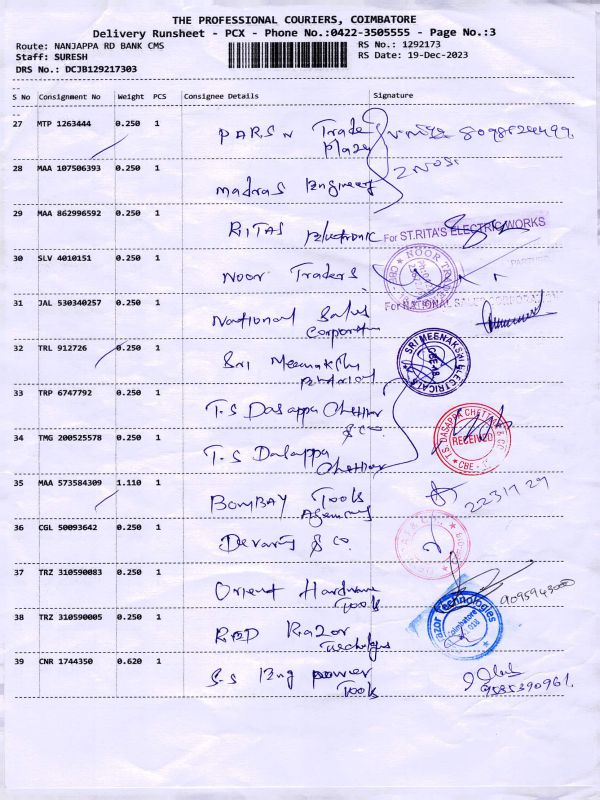 THE PROFESSIONAL COURIERS, COIMBATORE
Delivery Runsheet - PCX - Phone No.:0422-3505555 - Page No.:3
Route: NANJAPPA RD BANK CMS
RS No.: 1292173
Staff: SURESH
RS Date: 19-Dec-2023
DRS No.: DCJB129217303
S No Consignment No Weight PCS Consignee Details Signature
27 MTP 1263444 0.250 1
PARS N Trade
Plaza
28 MAA 107506393 0.250 1
Madras Engineer
29 MAA 862996592 0.250 1
RITAS Electronic
For ST.RITA'S ELECTRIC WORKS
30 SLV 4010151 0.250 1
Noor Traders
NOOR TRA
PARTNER
31 JAL 530340257 0.250 1
For NATIONAL SALES CORPORATION
National Sales
Corporation
32 TRL 912726 0.250 1
Sri Meenakshi
Electrical
SRI MEENAKSHI ELECTRICALS
33 TRP 6747792 0.250 1
T.S Dasappa Chettiar
& co.
T.S. DASAPPA CHETTIAR & CO.
RECEIVED
CBE
34 TMG 200525578 0.250 1
T.S Dasappa
Chettiar
35 MAA 573584309 1.110 1
BOMBAY Tools
Agency
22317 29
36 CGL 50093642 0.250 1
Devaraj & co.
37 TRZ 310590083 0.250 1
Orient Hardware
Tools
38 TRZ 310590005 0.250 1
RED Razor
Technologies
Razor Technologies
Coimbatore
39 CNR 1744350 0.620 1
S.S Eng power
Tools
9585390961